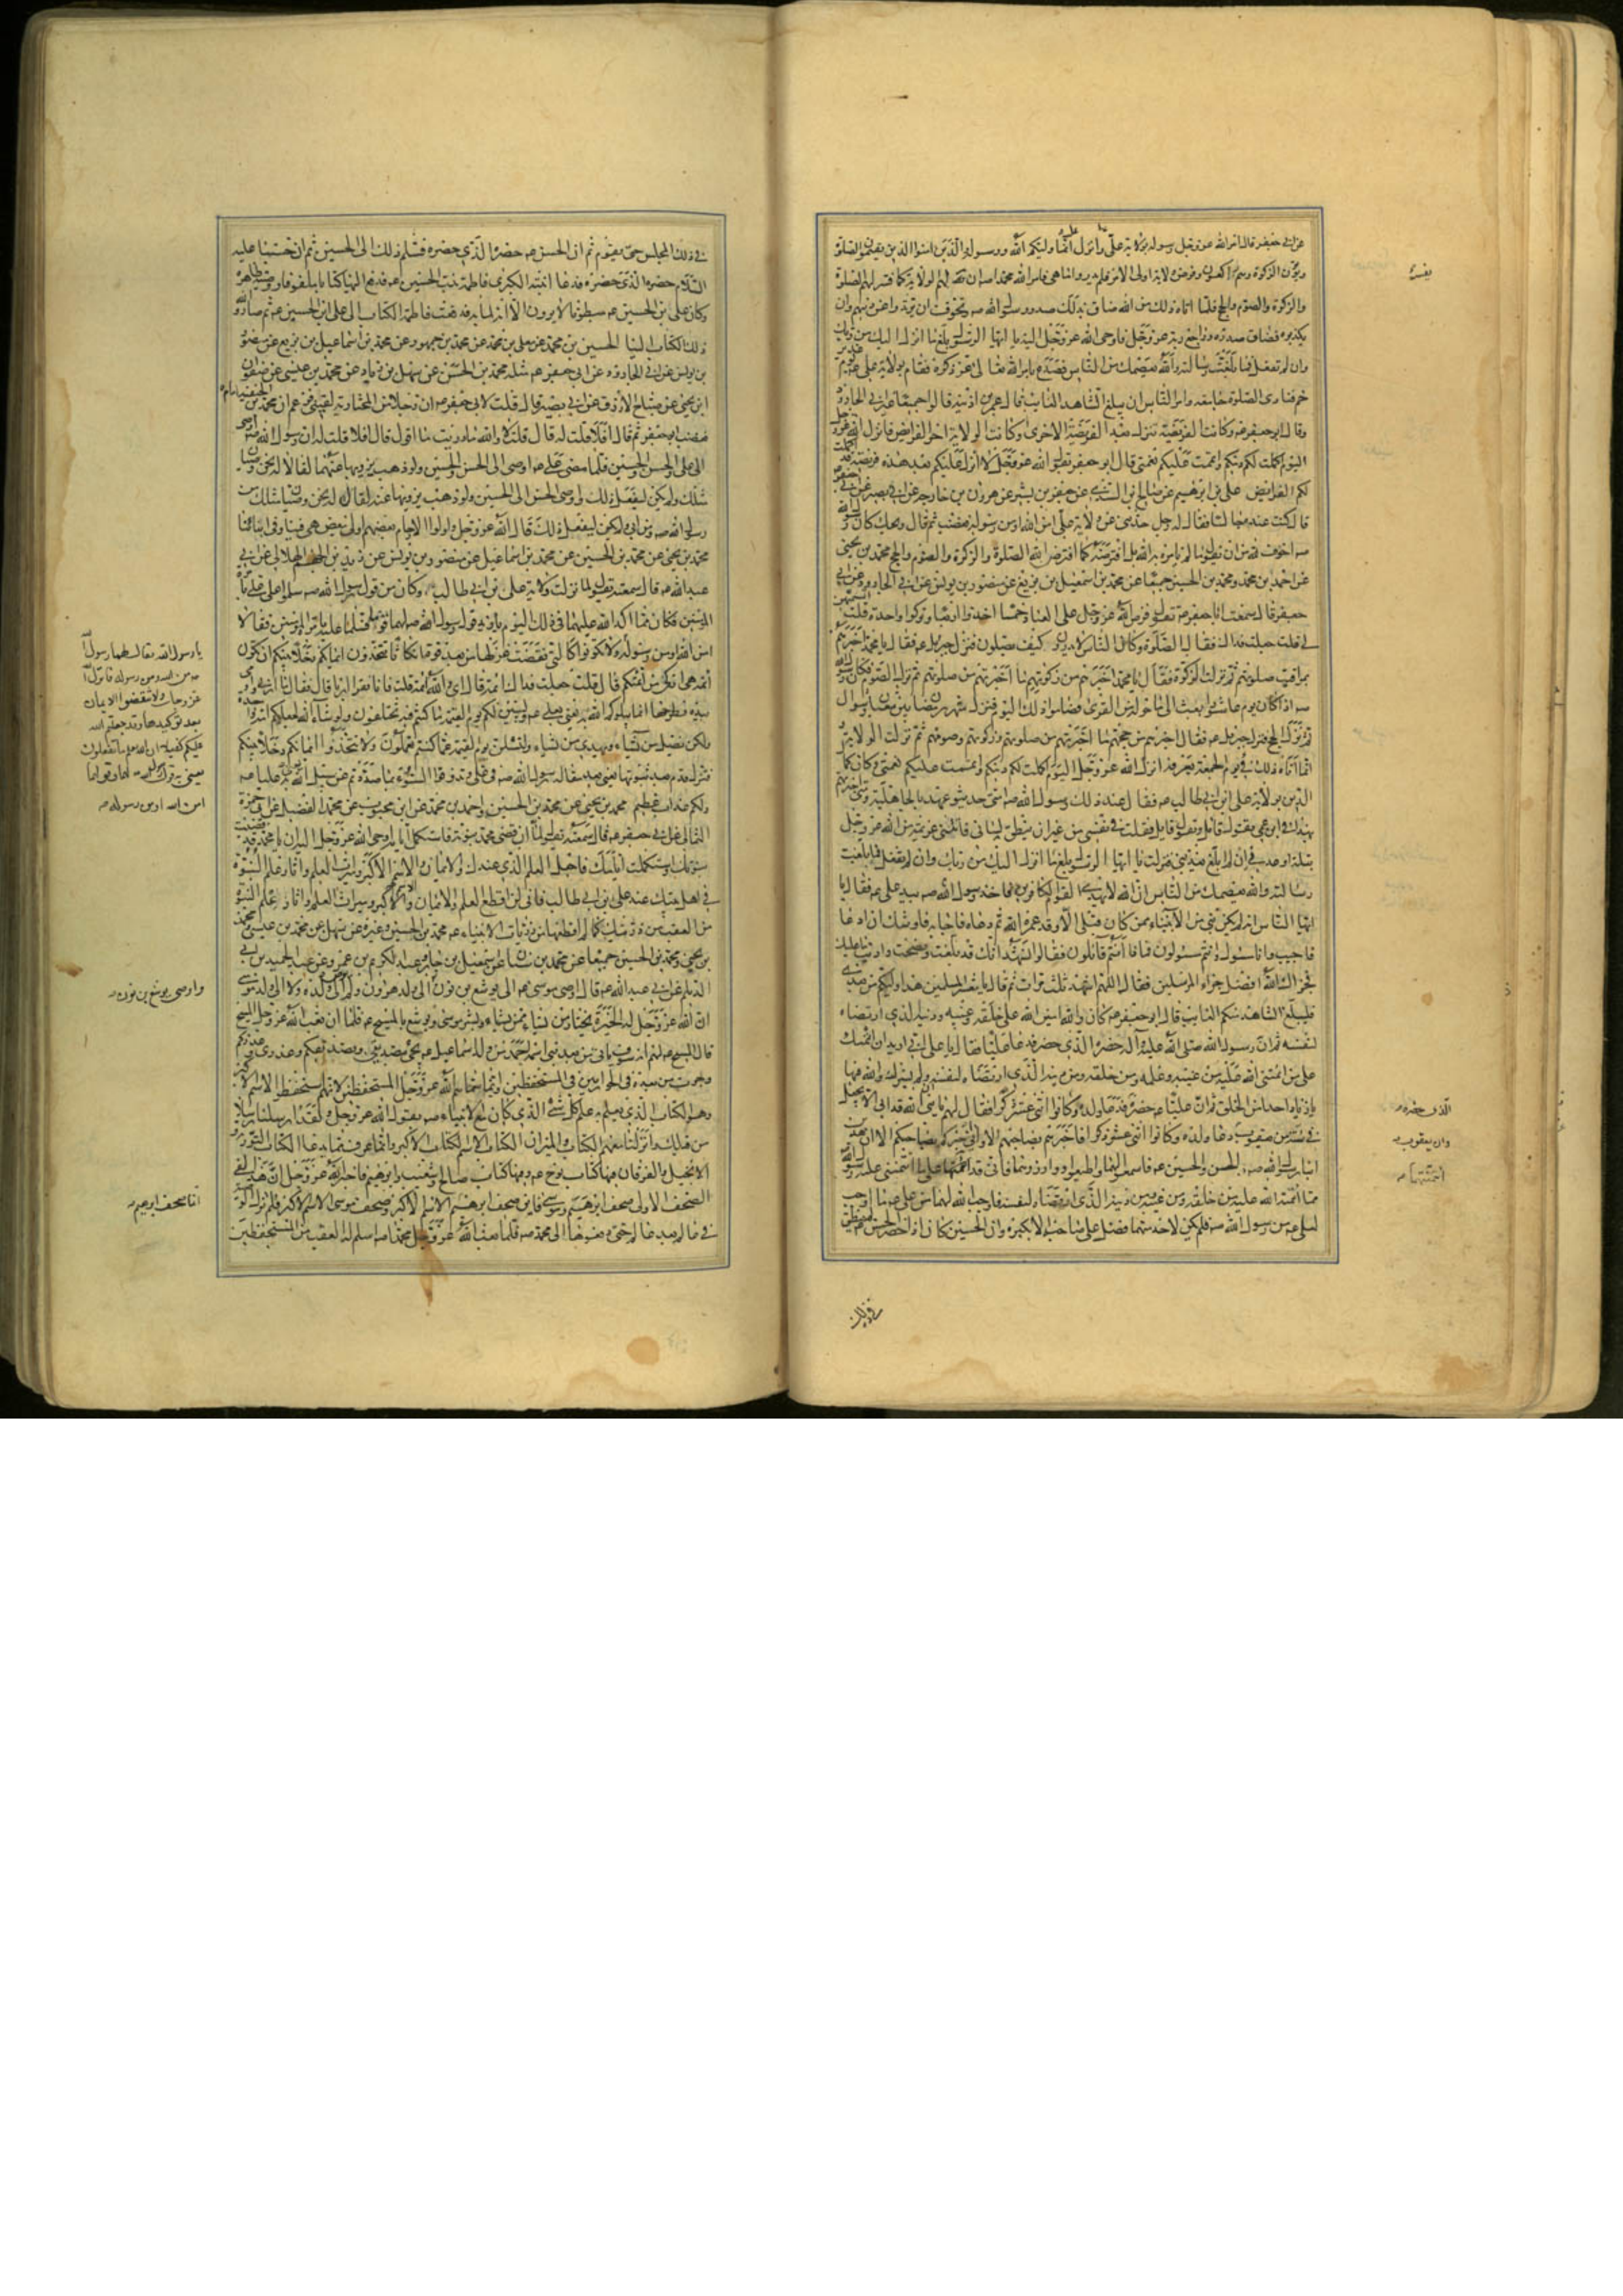 عن ابي جعفر قال امر الله عز وجل رسوله بولاية علي وانزل عليه انما وليكم الله ورسوله والذين امنوا الذين يقيمون الصلوة
ويؤتون الزكوة وفرض ولاية اولى الامر فلم يدروا ما هي فامر الله محمدا صه ان يفسر لهم الولاية كما فسر لهم الصلوة
والزكوة والصوم والحج فلما اتاه ذلك من الله ضاق بذلك صدر رسول الله صه وتخوف ان يرتدوا عن دينهم وان
يكذبوه فضاق صدره وراجع ربه عز وجل فاوحى الله عز وجل اليه يا ايها الرسول بلغ ما انزل اليك من ربك
وان لم تفعل فما بلغت رسالته والله يعصمك من الناس فصدع بامر الله تعالى ذكره فقام بولاية علي عم يوم غدير
خم فنادى الصلوة جامعة وامر الناس ان يبلغ الشاهد الغايب قال عمر بن اذينة قالوا جميعا غير ابي الجارود
وقال ابو جعفر عم وكانت الفريضة تنزل بعد الفريضة الاخرى وكانت الولاية اخر الفرايض فانزل الله عز وجل
اليوم اكملت لكم دينكم واتممت عليكم نعمتي قال ابو جعفر يقول الله عز وجل لا انزل عليكم بعد هذه فريضة قد اكملت
لكم الفرايض علي بن ابرهيم عن صالح بن السندي عن جعفر بن بشير عن هرون بن خارجة عن ابي بصير عن ابي جعفر
قال كنت عنده جالسا فقال له رجل حدثني عن ولاية علي امن الله او من رسوله فغضب ثم قال ويحك كان رسول الله
صه اخوف لله من ان يقول ما لم يامره به الله بل افترضه كما افترض الله الصلوة والزكوة والصوم والحج محمد بن يحيى
عن احمد بن محمد ومحمد بن الحسين جميعا عن محمد بن اسمعيل بن بزيع عن منصور بن يونس عن ابي الجارود عن ابي
جعفر قال سمعت ابا جعفر عم يقول فرض الله عز وجل على العباد خمسا اخذوا اربعا وتركوا واحدة قلت اتسميهن
لي قلت جعلت فداك فقال الصلوة وكان الناس لا يدرون كيف يصلون فنزل جبريل عم فقال يا محمد اخبرهم
بمواقيت صلوتهم ثم نزلت الزكوة فقال يا محمد اخبرهم من زكوتهم ما اخبرتهم من صلوتهم ثم نزل الصوم فكان رسول الله
صه اذا كان يوم عاشورا بعث الى ما حوله من القرى فصاموا ذلك اليوم فنزل شهر رمضان بين شعبان وشوال
ثم نزل الحج فنزل جبريل عم فقال اخبرهم من حجهم ما اخبرتهم من صلوتهم وزكوتهم وصومهم ثم نزلت الولاية
انما اتاه ذلك في يوم الجمعة بعرفة انزل الله عز وجل اليوم اكملت لكم دينكم واتممت عليكم نعمتي وكان كمال
الدين بولاية علي ابن ابي طالب عم فقال عند ذلك رسول الله صه امتي حديثو عهد بالجاهلية ومتى اخبرتهم
بهذا في ابن عمي يقول قايل ويقول قايل فقلت في نفسي من غير ان ينطق به لساني فاتتني عزيمة من الله عز وجل
بتلة اوعدني ان لم ابلغ ان يعذبني فنزلت يا ايها الرسول بلغ ما انزل اليك من ربك وان لم تفعل فما بلغت
رسالته والله يعصمك من الناس ان الله لا يهدي القوم الكافرين فاخذ رسول الله صه بيد علي عم فقال يا
ايها الناس انه لم يكن نبي من الانبياء ممن كان قبلي الا وقد عمره الله ثم دعاه فاجابه فاوشك ان ادعا
فاجيب وانا مسئول وانتم مسئولون فماذا انتم قائلون فقالوا نشهد انك قد بلغت ونصحت واديت ما عليك
فجزاك الله افضل جزاء المرسلين فقال اللهم اشهد ثلث مرات ثم قال يا معشر المسلمين هذا وليكم من بعدي
فليبلغ الشاهد منكم الغايب قال ابو جعفر عم كان والله امين الله على خلقه وغيبه ودينه الذي ارتضاه
لنفسه ثم ان رسول الله صلى الله عليه وآله حضره الذي حضر فدعا عليا فقال يا علي اني اريد ان ائتمنك
على ما ائتمنني الله عليه من غيبه وعلمه ومن خلقه ومن دينه الذي ارتضاه لنفسه فلم يشرك والله فيها
يا زياد احدا من الخلق ثم ان عليا عم حضره فدعا ولده وكانوا اثنى عشر ذكرا فقال لهم يا بني ان الله قد ابى الا ان يجعل
في سنة من يعقوب دعا ولده وكانوا اثنى عشر ذكرا فاخبرهم بصاحبهم الا واني اخبركم بصاحبكم الا ان هذين
ابنا رسول الله صه الحسن والحسين عم فاسمعوا لهما واطيعوا ووازروهما فاني قد ائتمنتهما على ما ائتمنني عليه رسول الله
مما ائتمنه الله عليه من خلقه ومن غيبه ومن دينه الذي ارتضاه لنفسه فاوجب الله لهما من علي عم ما اوجب
لعلي عم من رسول الله صه فلم يكن لاحد منهما فضل على صاحبه الا بكبره وان الحسين كان اذا حضر الحسن لم ينطق
في ذلك
يفسر
الذي حضره
وان يعقوب
ائتمنتهما
في ذلك المجلس حتى يقوم ثم ان الحسن عم حضره الذي حضره فسلم ذلك الى الحسين ثم ان حسينا عليه
السلام حضره الذي حضره فدعا ابنته الكبرى فاطمة بنت الحسين عم فدفع اليها كتابا ملفوفا ووصية ظاهرة
وكان علي بن الحسين عم مبطونا لا يرون الا انه لما به فدفعت فاطمة الكتاب الى علي ابن الحسين عم ثم صار والله
ذلك الكتاب الينا الحسين بن محمد عن معلى بن محمد عن محمد بن جمهور عن محمد بن اسماعيل بن بزيع عن منصور
بن يونس عن ابي الجارود عن ابي جعفر عم مثله محمد بن الحسن عن سهل بن زياد عن محمد بن عيسى عن صفوان
ابن يحيى عن صباح الازرق عن ابي بصير قال قلت لابي جعفر عم ان رجلا من المختارية لقيني فزعم ان محمد بن الحنفية امام
فغضب ابو جعفر ثم قال افلا قلت له قال قلت لا والله ما دريت ما اقول قال افلا قلت له ان رسول الله صه اوصى
الى علي والحسن والحسين فلما مضى علي عم اوصى الى الحسن والحسين ولو ذهب يزويها عنهما لقالا له نحن وصيان
مثلك ولم يكن ليفعل ذلك واوصى الحسن الى الحسين ولو ذهب يزويها عنه لقال له نحن وصيان مثلك من
رسول الله صه ومن ابي ولم يكن ليفعل ذلك قال الله عز وجل واولوا الارحام بعضهم اولى ببعض هي فينا وفي ابنائنا
محمد بن يحيى عن محمد بن الحسين عن محمد بن اسماعيل عن منصور بن يونس عن زيد بن الجهم الهلالي عن ابي
عبد الله عم قال سمعته يقول لما نزلت ولاية علي بن ابي طالب وكان من قول رسول الله صه سلموا على علي بامرة
المؤمنين فكان مما اكد الله عليهما في ذلك اليوم يا زيد قول رسول الله صه لهما قوما فسلما عليه بامرة المؤمنين فقالا
امن الله او من رسوله ولا تكونوا كالتي نقضت غزلها من بعد قوة انكاثا تتخذون ايمانكم دخلا بينكم ان تكون
ائمة هي ازكى من ائمتكم قال قلت جعلت فداك ائمة قال اي والله ائمة قلت فانا نقرا اربى قال فقال ما اربى واومى
بيده فطرحها انما يبلوكم الله به يعني بعلي عم وليبينن لكم يوم القيمة ما كنتم فيه تختلفون ولو شاء الله لجعلكم امة واحدة
ولكن يضل من يشاء ويهدي من يشاء ولتسئلن يوم القيمة عما كنتم تعملون ولا تتخذوا ايمانكم دخلا بينكم
فتزل قدم بعد ثبوتها يعني بعد مقالة رسول الله صه في علي وتذوقوا السوء بما صددتم عن سبيل الله يعني به عليا عم
ولكم عذاب عظيم محمد بن يحيى عن محمد بن الحسين واحمد بن محمد عن ابن محبوب عن محمد بن الفضيل عن ابي حمزة
الثمالي عن ابي جعفر عم قال سمعته يقول لما ان قضى محمد نبوته واستكمل ايامه اوحى الله عز وجل اليه ان يا محمد قد قضيت
نبوتك واستكملت ايامك فاجعل العلم الذي عندك والايمان والاسم الاكبر وميراث العلم واثار علم النبوة
في اهل بيتك عند علي بن ابي طالب فاني لن اقطع العلم والايمان والاسم الاكبر وميراث العلم واثار علم النبوة
من العقب من ذريتك كما لم اقطعها من ذريات الانبياء عم محمد بن الحسين وغيره عن سهل عن محمد بن عيسى ومحمد
بن يحيى ومحمد بن الحسين جميعا عن محمد بن سنان عن اسمعيل بن جابر وعبد الكريم بن عمرو عن عبد الحميد بن ابي
الديلم عن ابي عبد الله عم قال اوصى موسى عم الى يوشع بن نون الى ولد هرون ولم يوص الى ولده ولا الى ولد موسى
ان الله عز وجل له الخيرة يختار من يشاء ممن يشاء وبشر موسى ويوشع بالمسيح عم فلما ان بعث الله عز وجل المسيح
قال المسيح عم لهم انه سوف ياتي من بعدي نبي اسمه احمد من ولد اسماعيل عم يجيء بتصديقي وتصديقكم وعذري وعذركم
وجرت من بعده في الحواريين في المستحفظين وانما سماهم الله عز وجل المستحفظين لانهم استحفظوا الاسم الاكبر
وهو الكتاب الذي يعلم به علم كل شئ الذي كان مع الانبياء صه يقول الله عز وجل ولقد ارسلنا رسلا
من قبلك وانزلنا معهم الكتاب والميزان الكتاب الاسم الاكبر وانما عرف مما يدعا الكتاب التورية
والانجيل والفرقان فيها كتاب نوح عم وفيها كتاب صالح وشعيب وابرهيم فاخبر الله عز وجل ان هذا لفي
الصحف الاولى صحف ابرهيم وموسى فاين صحف ابرهيم الاسم الاكبر وصحف موسى الاسم الاكبر فلم تزل الوصية
في عالم بعد عالم حتى دفعوها الى محمد صه فلما بعث الله عز وجل محمدا صه اسلم له العقب من المستحفظين
يا رسول الله فقال لهما رسول الله
صه من الله ومن رسوله فانزل الله
عز وجل ولا تنقضوا الايمان
بعد توكيدها وقد جعلتم الله
عليكم كفيلا ان الله يعلم ما تفعلون
يعني به قول رسول الله صه لهما وقولهما
امن الله او من رسوله
واوصى يوشع بن نون
انما صحف ابرهيم